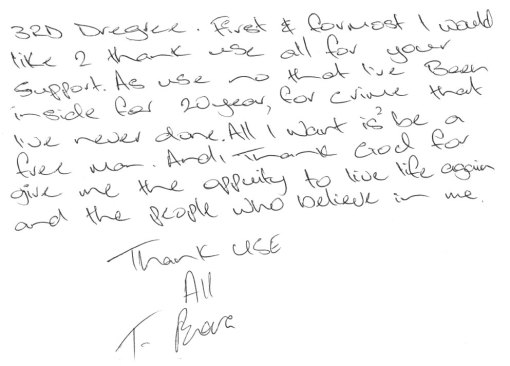 3RD Dregree. First & formost I would
like 2 thank use all for your
Support. As use no that I've Been
inside for 20year, for crime that
I've never done. All I want is 2 be a
free man. And I Thank God for
give me the oppuity to live life again
and the people who believe in me.
Thank USE
All
T.